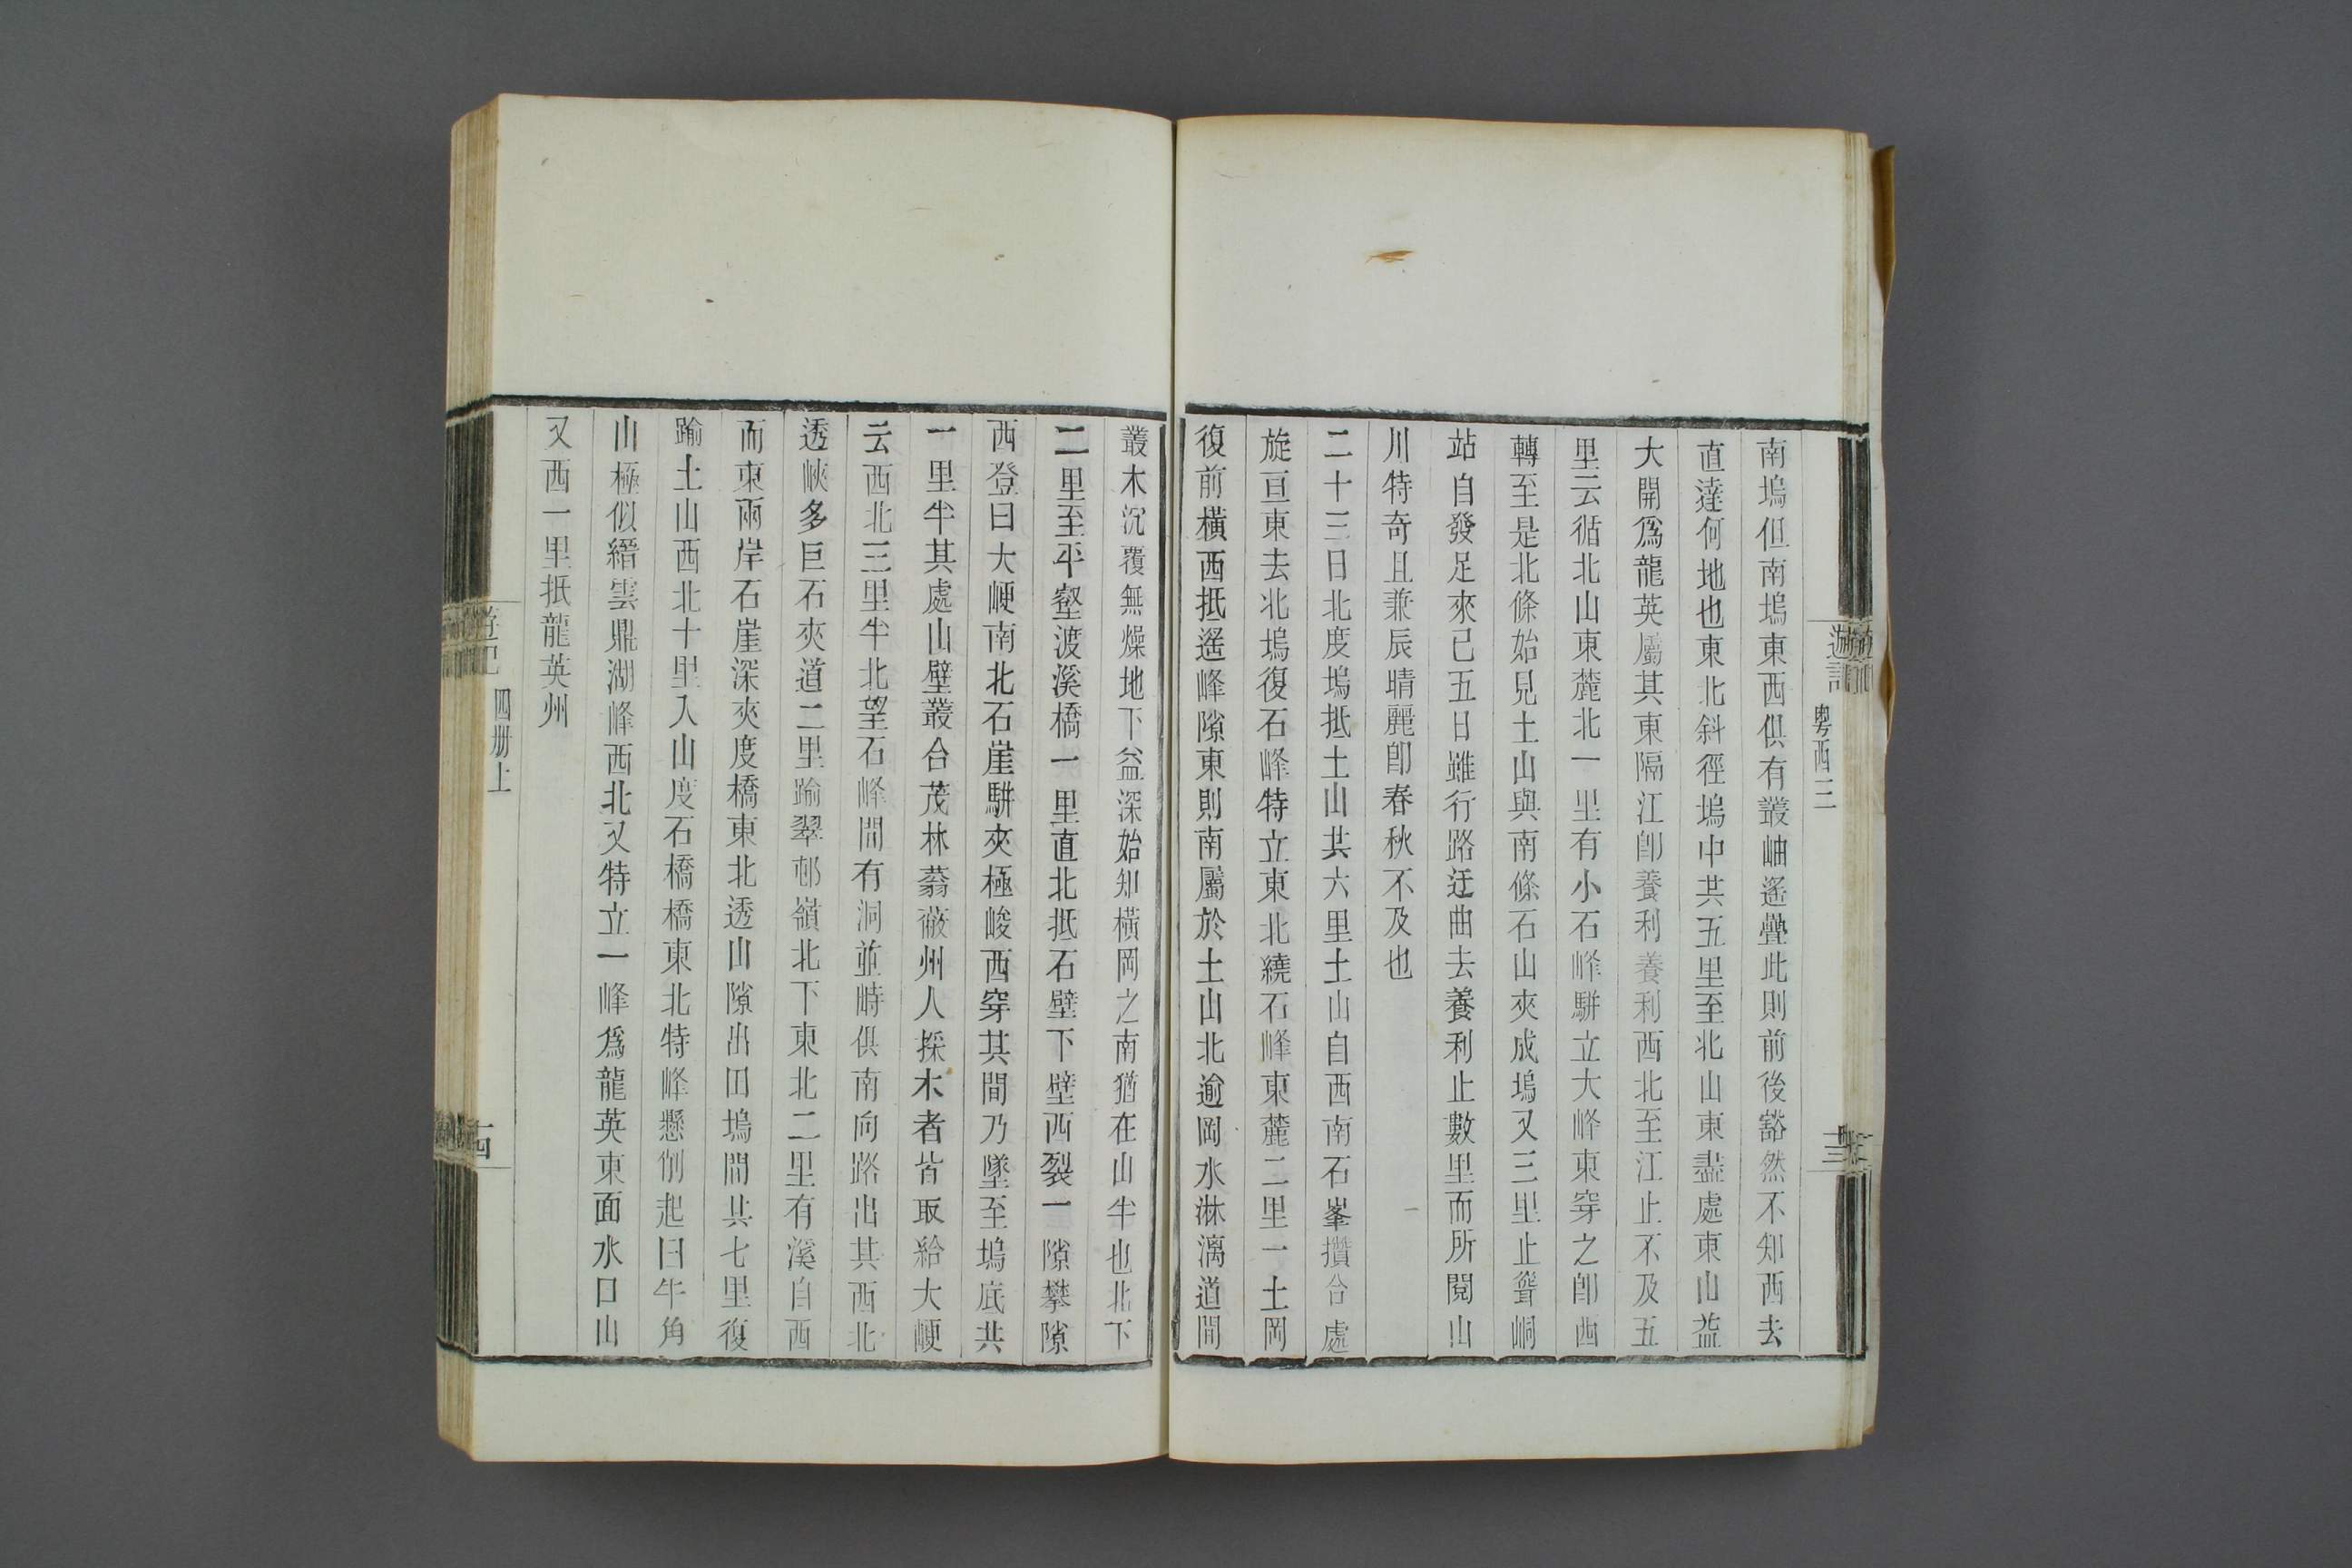 遊記
粵西三
南塢但南塢東西俱有叢岫遙疊此則前後豁然不知西去
直達何地也東北斜徑塢中共五里至北山東盡處東山益
大開爲龍英屬其東隔江卽養利養利西北至江止不及五
里云循北山東麓北一里有小石峰駢立大峰東穿之卽西
轉至是北條始見土山與南條石山夾成塢又三里止聳峒
站自發足來已五日雖行路迂曲去養利止數里而所閱山
川特奇且兼辰晴麗卽春秋不及也
二十三日北度塢抵土山共六里土山自西南石峯攢合處
旋亘東去北塢復石峰特立東北繞石峰東麓二里一土岡
復前橫西抵遙峰隙東則南屬於土山北逾岡水淋漓道間
叢木沉覆無燥地下益深始知橫岡之南猶在山半也北下
二里至平壑渡溪橋一里直北抵石壁下壁西裂一隙攀隙
西登曰大峺南北石崖駢夾極峻西穿其間乃墜至塢底共
一里半其處山壁叢合茂林蓊蔽州人採木者皆取給大峺
云西北三里半北望石峰間有洞並畤俱南向路出其西北
透峽多巨石夾道二里踰翠邨嶺北下東北二里有溪自西
而東兩岸石崖深夾度橋東北透山隙出田塢間共七里復
踰土山西北十里入山度石橋橋東北特峰懸削起曰牛角
山極似縉雲鼎湖峰西北又特立一峰爲龍英東面水口山
又西一里抵龍英州
四册上